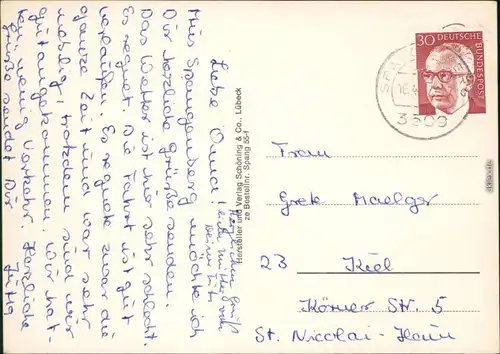 Liebe Oma!
Aus Spangenberg möchte ich
Dir herzliche Grüße senden.
Das Wetter ist hier sehr schlecht.
Es regnet. Die Fahrt ist gut
verlaufen. Es regnete zwar die
ganze Zeit und war sehr
neblig, trotzdem sind wir
gut angekommen. Wir hat-
ten wenig Verkehr. Herzliche
Grüße sendet Dir
Jutta
Herzlichen Gruß
Deine
Hersteller und Verlag Schöning & Co., Lübeck
ze Bestellnr. Spang 55-f
30 DEUTSCHE
BUNDESPOST
3509
Frau
Grete Maelger
23 Kiel
Körner Str. 5
St. Nicolai-Heim